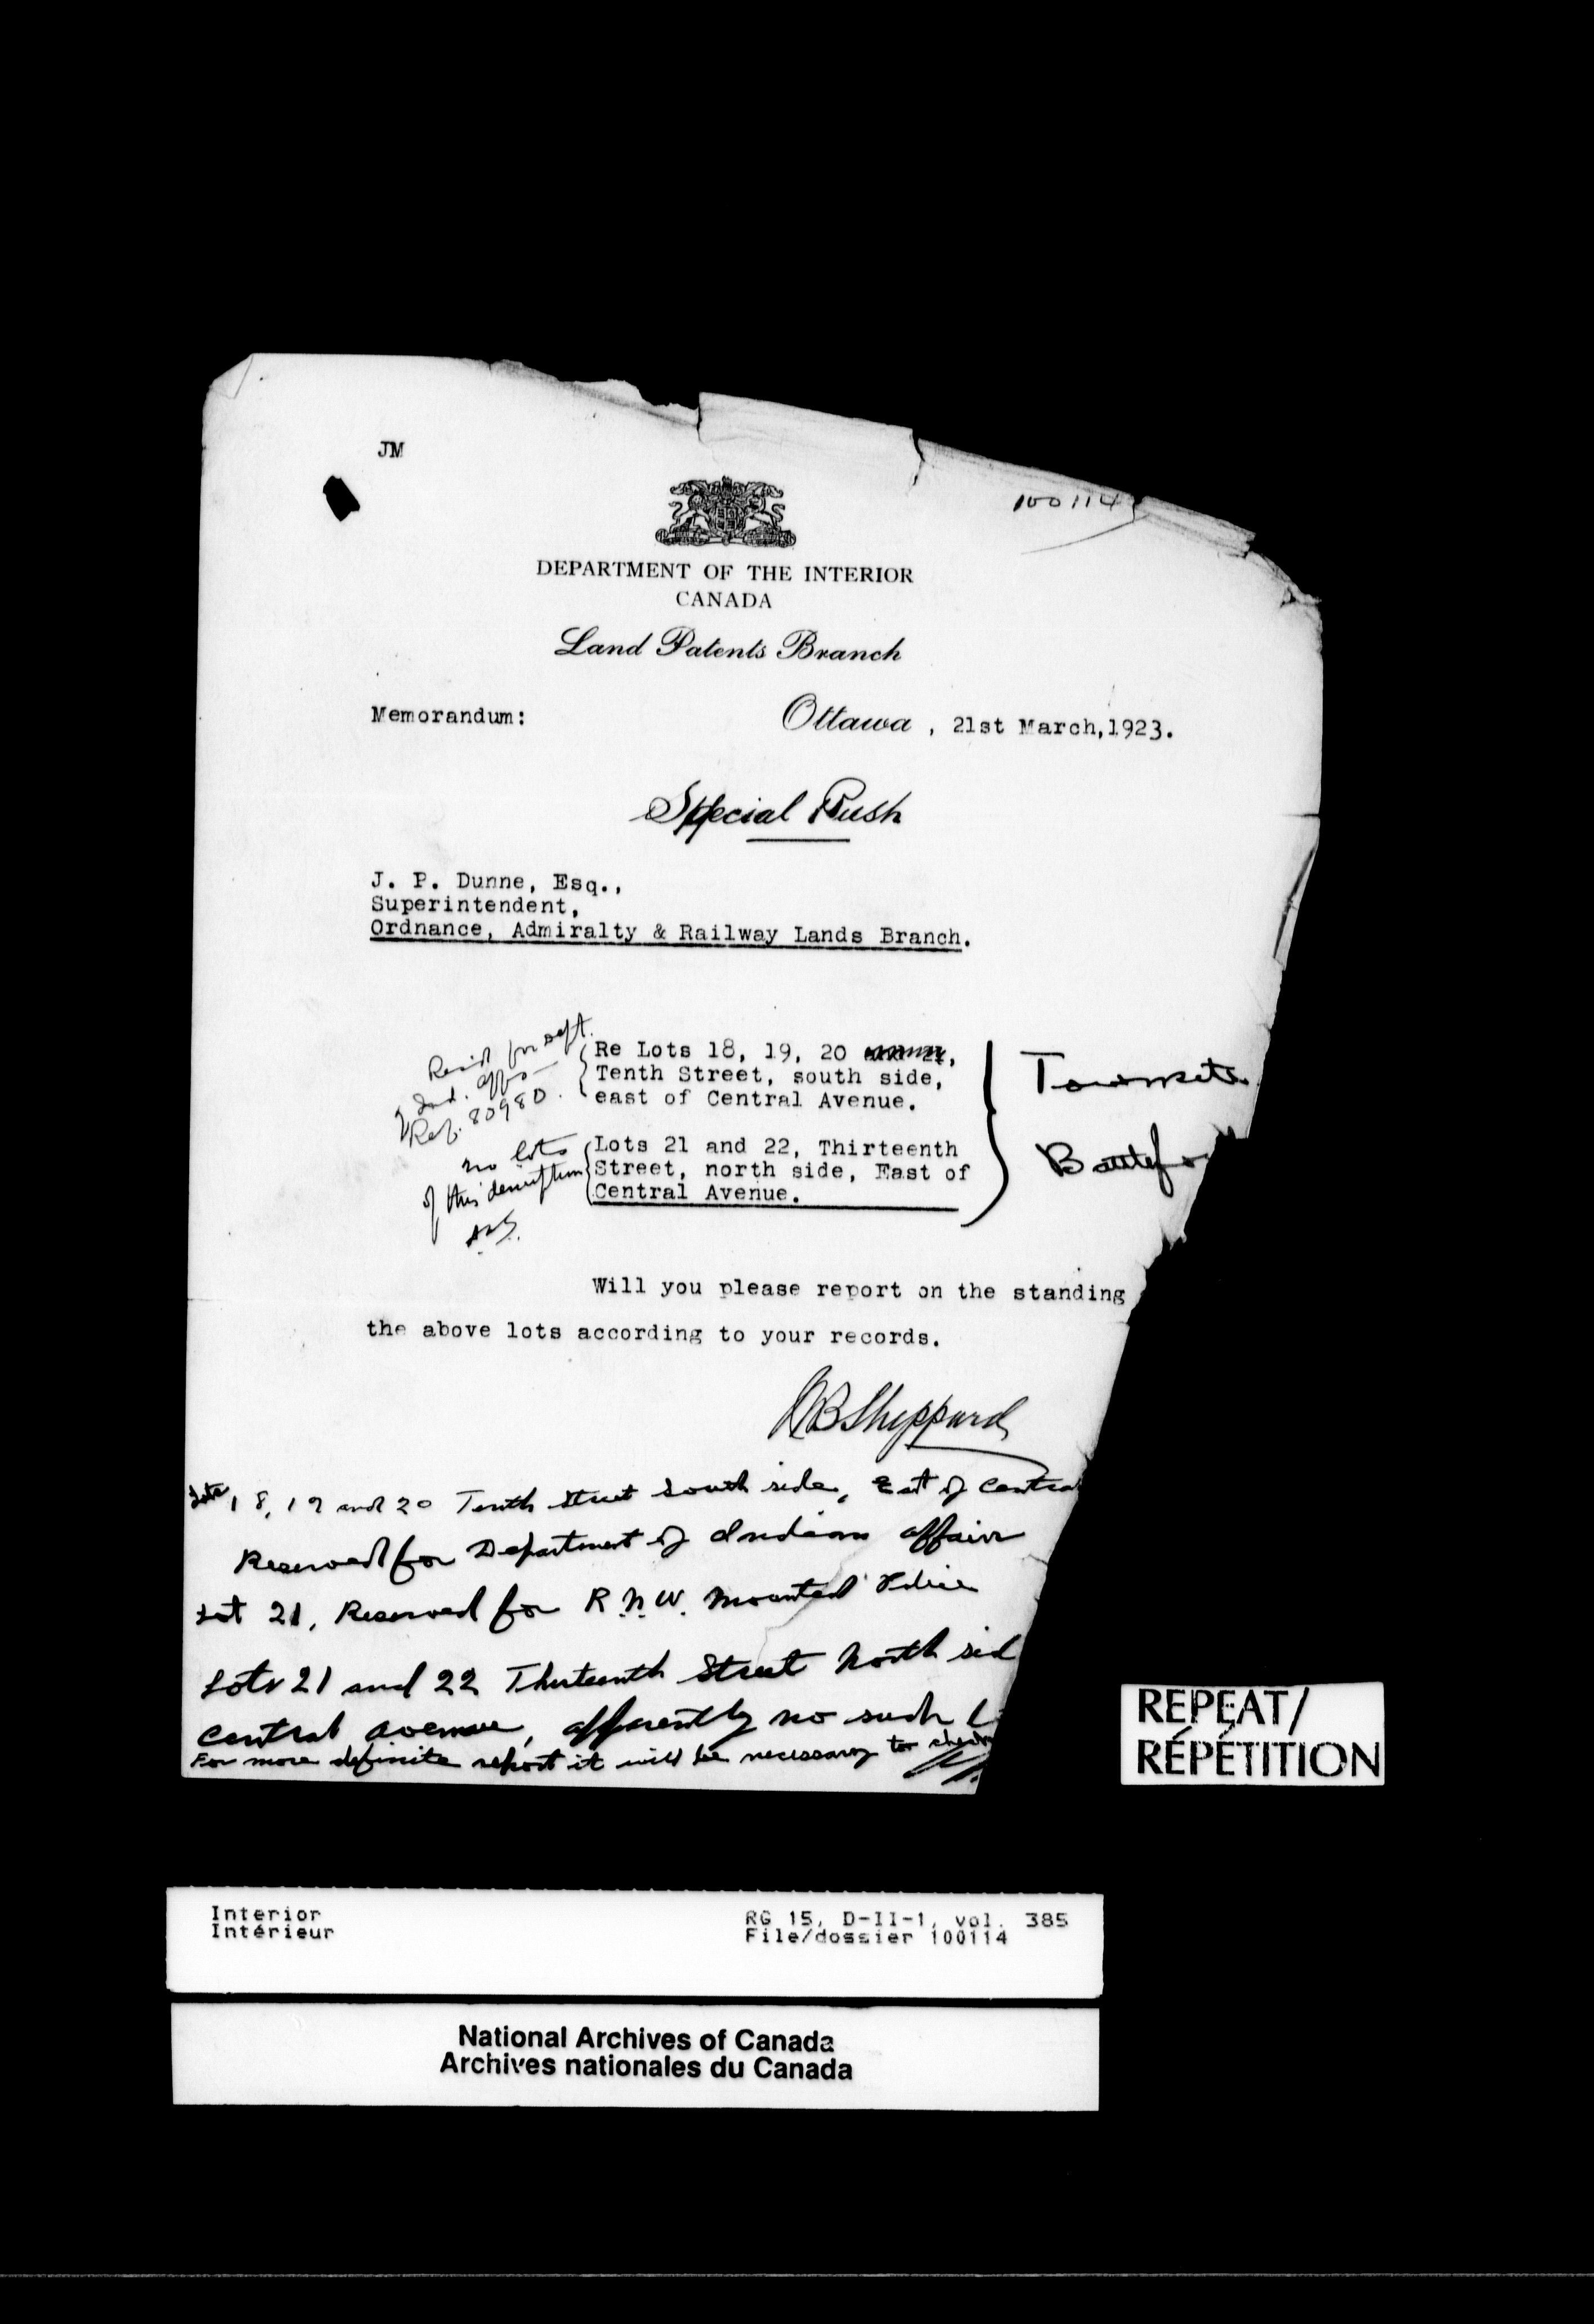 JM
100114
DEPARTMENT OF THE INTERIOR
CANADA
Land Patents Branch
Memorandum:
Ottawa, 21st March, 1923.
Special Rush
J. P. Dunne, Esq.,
Superintendent,
Ordnance, Admiralty & Railway Lands Branch.
Resd for Dept.
of Ind. Affrs
Ref. 80980.
Re Lots 18, 19, 20 and 21,
Tenth Street, south side,
east of Central Avenue.
no lots
of this description
Lots 21 and 22, Thirteenth
Street, north side, East of
Central Avenue.
Townsite
Battlefor
Will you please report on the standing
the above lots according to your records.
Sheppard
Lots 18, 19 and 20 Tenth Street South side, East of Central
Reserved for Department of Indian Affairs
Lot 21, Reserved for R.N.W. Mounted Police
Lots 21 and 22 Thirteenth Street North sid
Central Avenue, apparently no such
For more definite report it will be necessary to
REPEAT/
RÉPÉTITION
Interior
Intérieur
RG 15, D-II-1, vol. 385
File/dossier 100114
National Archives of Canada
Archives nationales du Canada